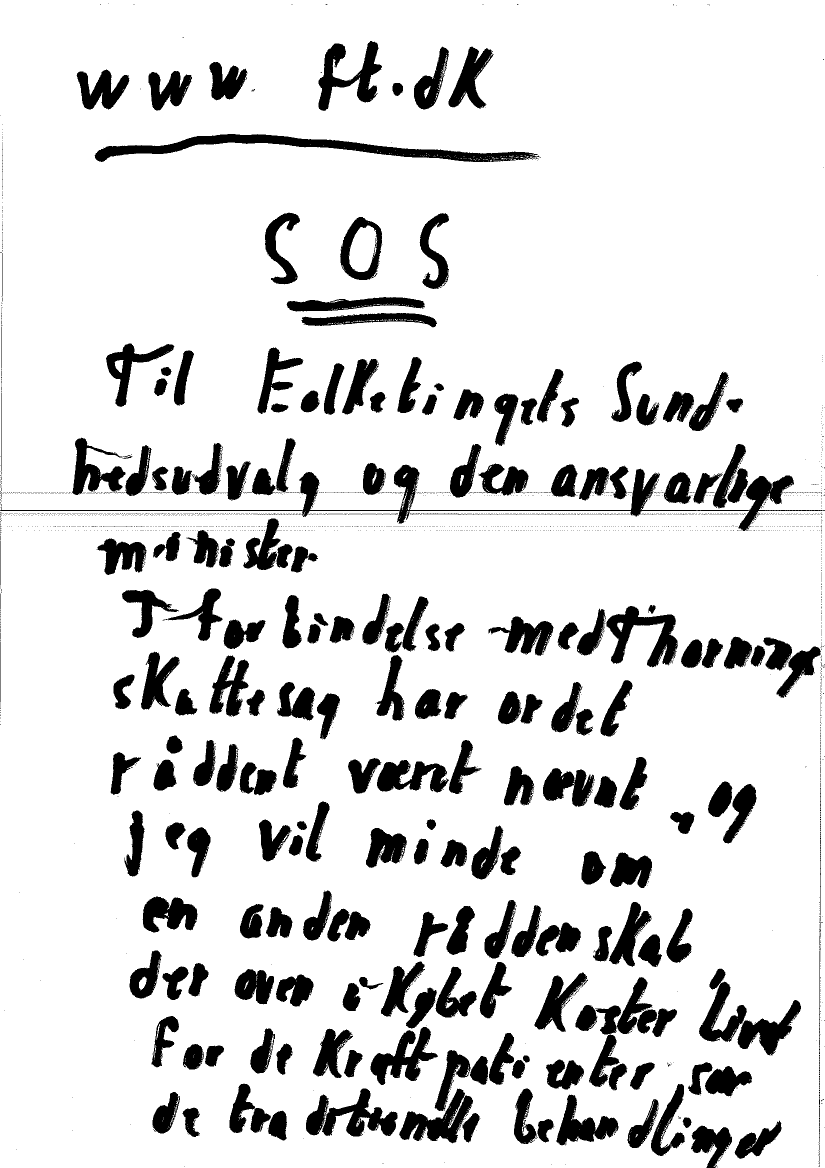 www ft.dk
SOS
Til Folketingets Sund-
hedsudvalg og den ansvarlige
minister.
I forbindelse med Thornings
skattesag har ordet
råddent været nævnt, og
jeg vil minde om
en anden råddenskab
der oven i købet koster livet
for de kræftpatienter som
de traditionelle behandlinger